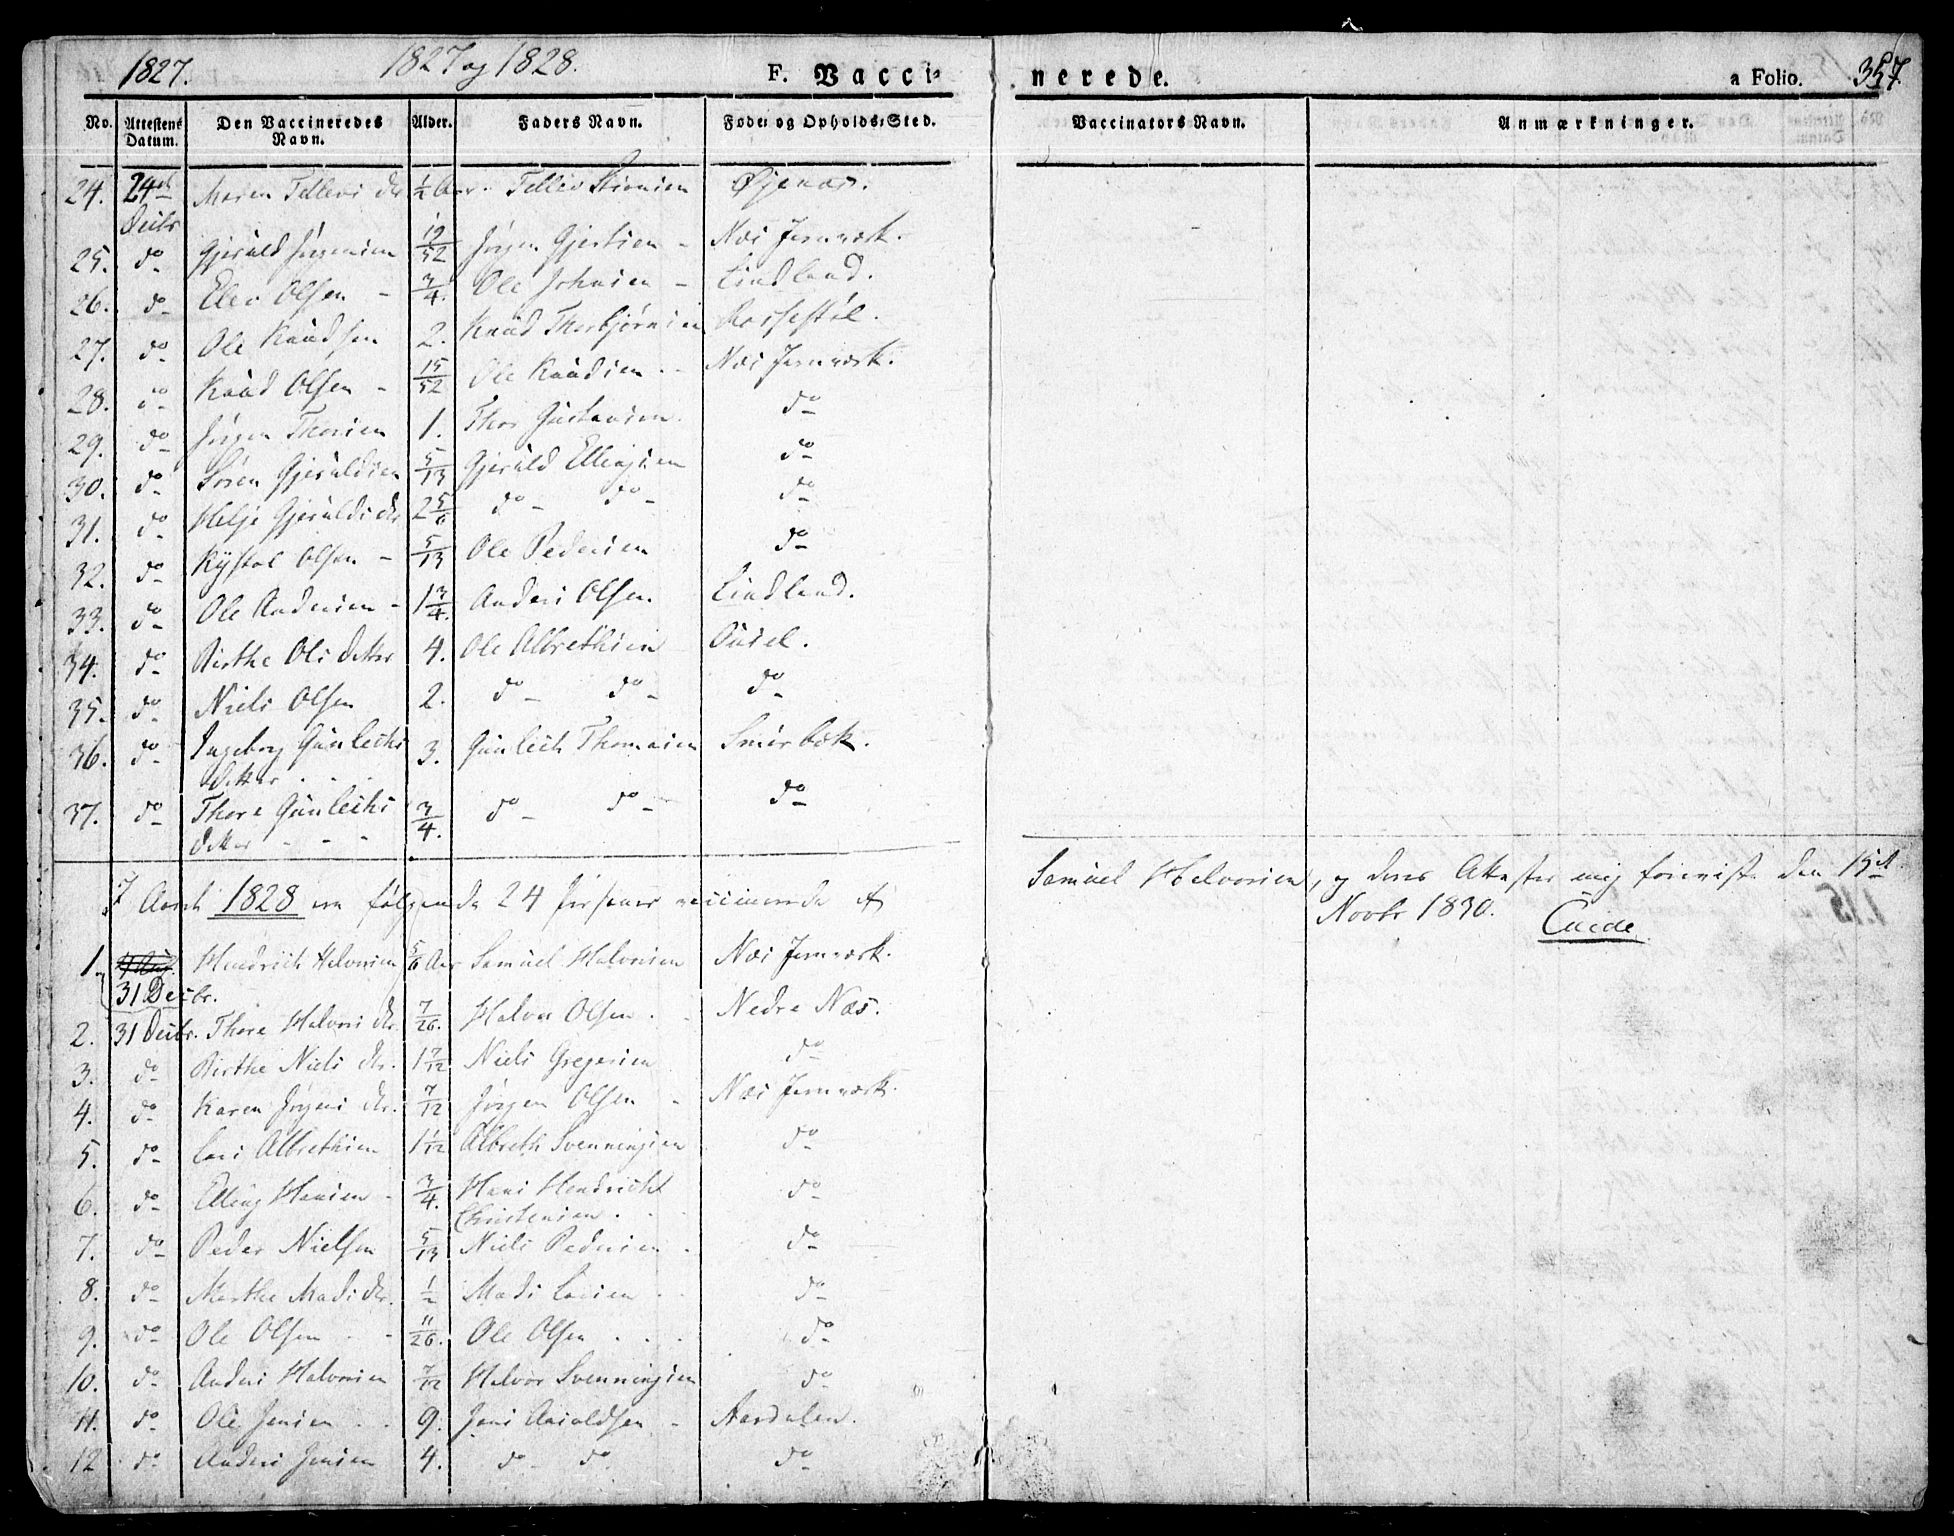 1827. 1827 og 1828. F. Vacci= nerede. a Folio. 357
No. Attestens Datum. Den Vaccineredes Navn. Alder. Faders Navn. Føde= og Opholds=Sted. Vaccinators Navn. Anmærkninger.
24. 24de Decbr Maren Tellevs dr 1/2 Aar. Tellev Øjenæs.
25. do Gjeruld Jørgensen 19/52 Jørgen Gjertsen - Næs Jernværk.
26. do Elev Olsen - 3/4. Ole Johnsen - Lindland.
27. do Ole Knudsen 2. Knud Thorbjørnsen Rossestöl.
28. do Knud Olsen - 15/52 Ole Knudsen - - Næs Jernværk.
29. do Jørgen Thorsen 1. Thor Gustavsen. do
30. do Søren Gjeruldsen 5/13 Gjeruld Ellingsen do
31. do Helje Gjerulds dr 2 5/6 do - do - do
32. do Kystol Olsen - 5/13 Ole Pedersen do
33. do Ole Andersen - 1 3/4. Anders Olsen. Lindland.
34. do Birthe Ols datter 4. Ole Albrethsen Ousel.
35. do Niels Olsen 2. do - do - do
36. do Ingeborg Gunleichs 3. Gunleich Thomasen Smørbæk.
datter . . .
37. do Thore Gunleichs 3/4. do do - do
datter - - -
I Aaret 1828 ere følgende 24 Personer vaccinerede af Samuel Halvorsen, og deres Attester mig foreviste den 15de
Novbr 1830.
1. 31 Decbr. Hendrich Halvorsen 5/6 Aar Samuel Halvorsen Næs Jernværk.
2. 31 Decbr. Thore Halvors dr. 7/26. Halvor Olsen . Nedre Næs.
3. do Birthe Niels dr. 1 7/12 Niels Gregersen do
4. do Karen Jørgens dr. 7/12 Jørgen Olsen - Næs Jernværk.
5. do Lars Albrethsen 1 1/12 Albreth Svenningsen do
6. do Elling Hansen - 3/4. Hans Hendrich do
Christensen . .
7. do Peder Nielsen 5/13 Niels Pedersen . do
8. do Marthe Mads dr. 1/2 Mads Larsen . . do
9. do Ole Olsen - - 11/26. Ole Olsen . . . do
10. do Anders Halvorsen 7/12 Halvor Svenningsen do
11. do Ole Jensen . . 9. Jens Aasoldsen - Aardalen.
12 do Anders Jensen 4. do - do do